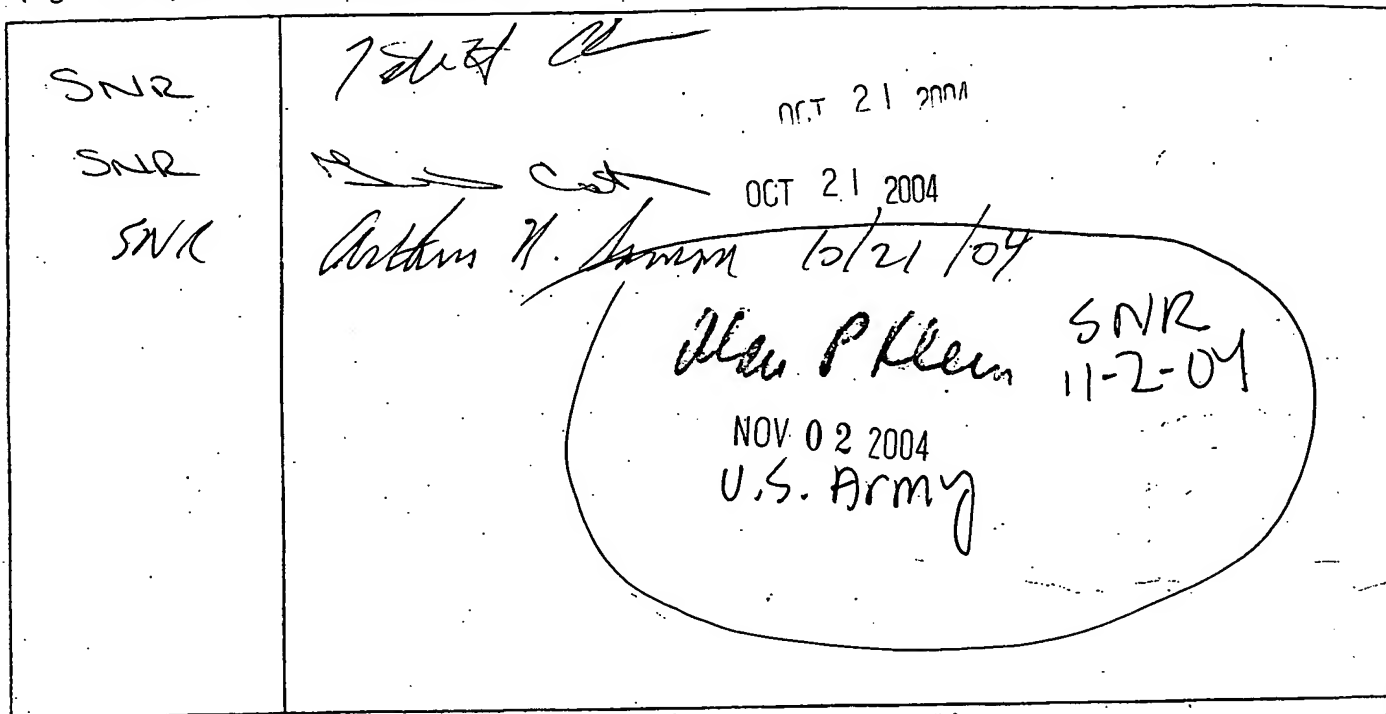 SNR
OCT 21 2004
SNR
OCT 21 2004
SNR Arthur H. 10/21/04
Alan P Klein SNR
11-2-04
NOV 02 2004
U.S. Army